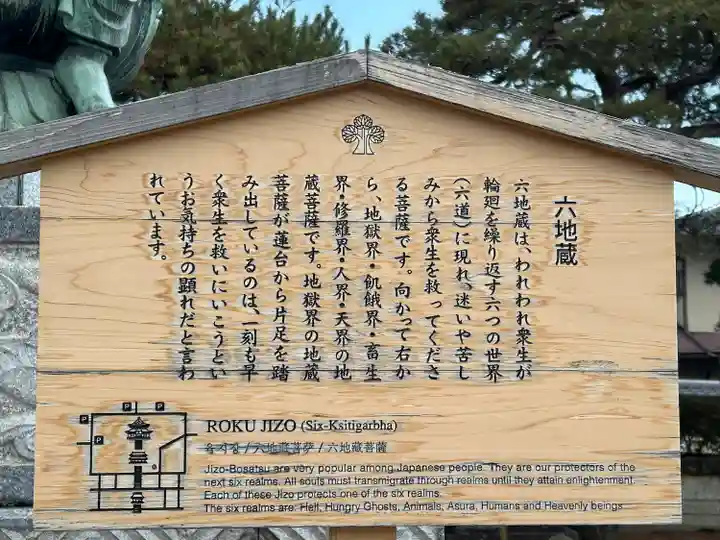 六地蔵
六地蔵は、われわれ衆生が
輪廻を繰り返す六つの世界
(六道)に現れ、迷いや苦し
みから衆生を救ってくださ
る菩薩です。向かって右か
ら、地獄界・飢餓界・畜生
界・修羅界・人界・天界の地
蔵菩薩です。地獄界の地蔵
菩薩が蓮台から片足を踏
み出しているのは、一刻も早
く衆生を救いにいこうとい
うお気持ちの顕れだと言わ
れています。
P P P
P
ROKU JIZO (Six-Ksitigarbha)
육지장 / 六地藏菩萨 / 六地藏菩薩
Jizo-Bosatsu are very popular among Japanese people. They are our protectors of the
next six realms. All souls must transmigrate through realms until they attain enlightenment.
Each of these Jizo protects one of the six realms.
The six realms are: Hell, Hungry Ghosts, Animals, Asura, Humans and Heavenly beings